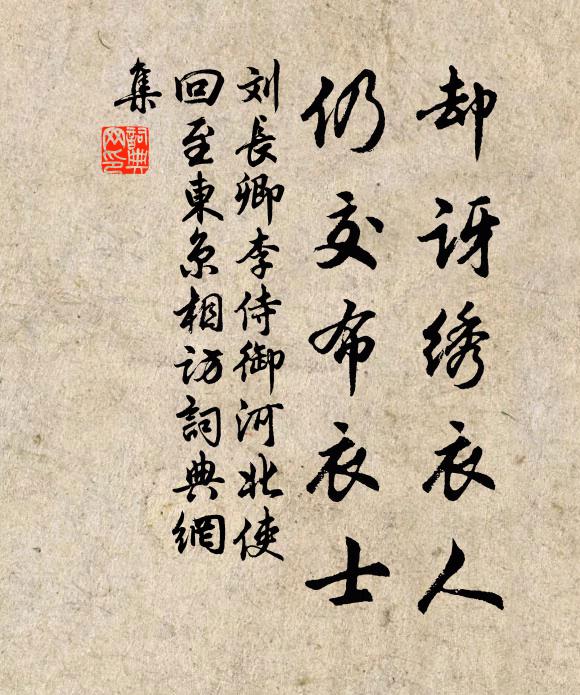 却讶绣衣人
仍交布衣士
刘長卿李侍御河北使
回至東京相访詞典網
集
詞典
网印